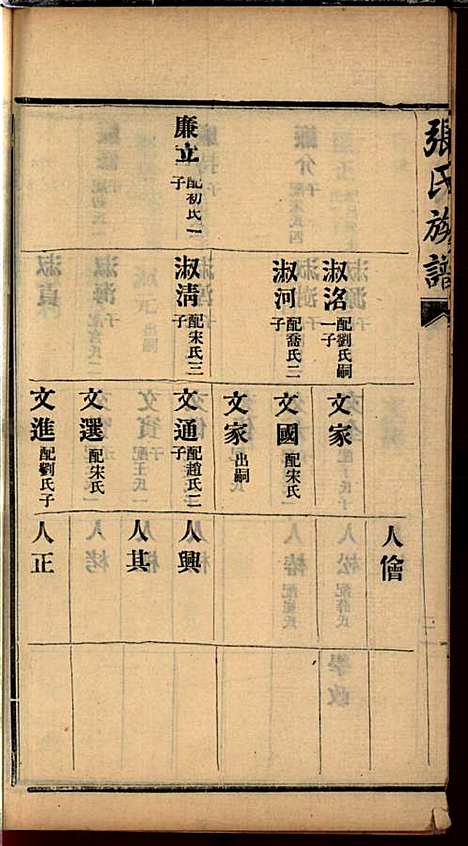 張氏族譜
廉立 配初氏一子
淑洛 配劉氏嗣一子
淑河 配喬氏二子
淑清 配宋氏三子
文家
文國 配宋氏
文家 出嗣
文通 配趙氏二子
文選 配宋氏
文進 配劉氏子
人儈
人興
人其
人正